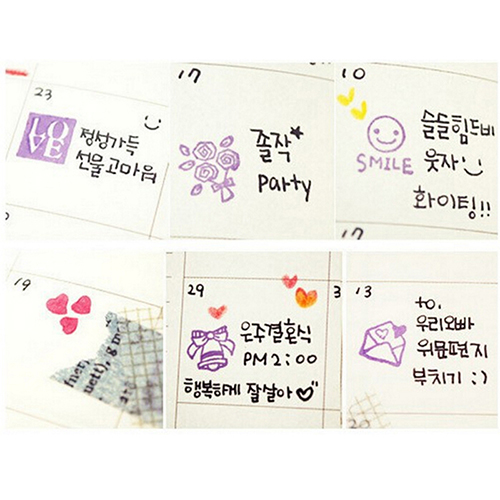 23
LOVE
정성가득
선물고마워
17
졸작
party
10
슬슬힘드비
SMILE 웃자
화이팅!!
17
19
fuer
nett), g m
29
3
은주결혼식
PM 2:00
행복하게 잘살아
13
to,
우리오빠
위문편지
부치기 :)
20